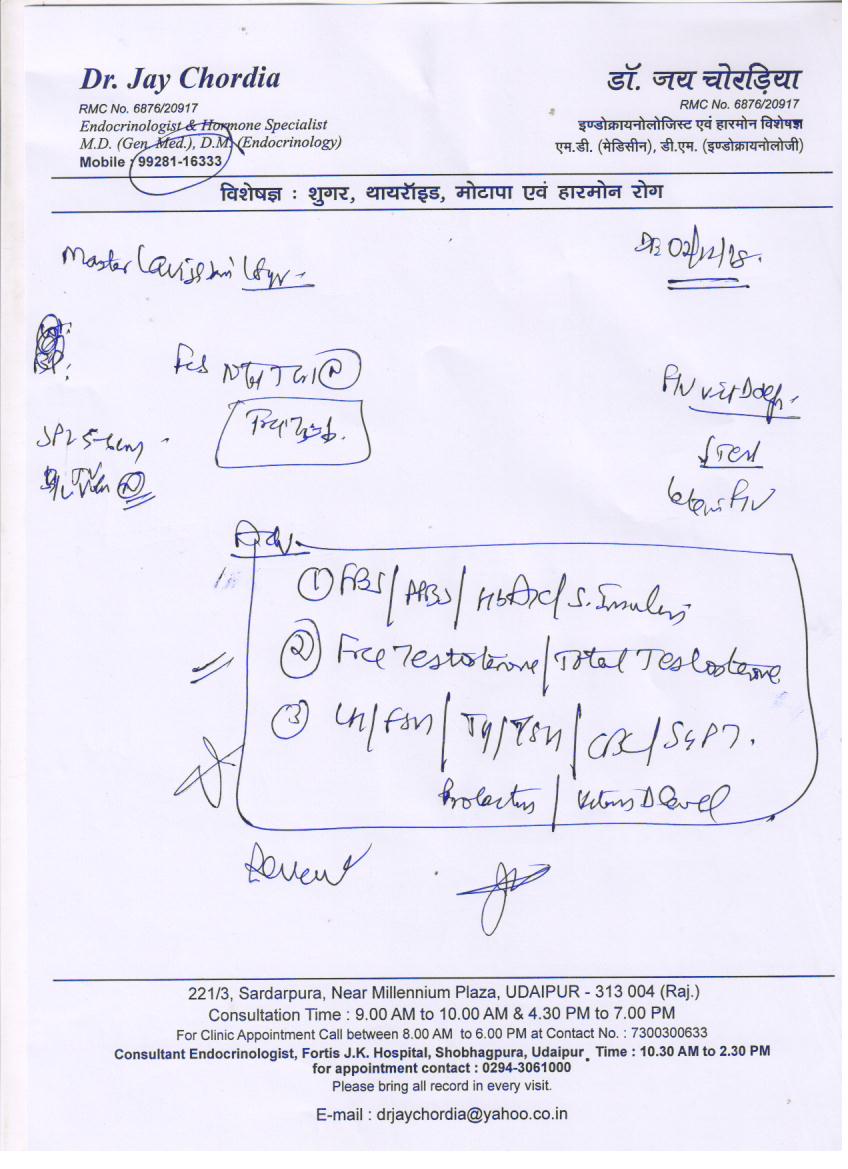 Dr. Jay Chordia
RMC No. 6876/20917
Endocrinologist & Hormone Specialist
M.D. (Gen. Med.), D.M. (Endocrinology)
Mobile : 99281-16333
डॉ. जय चोरड़िया
RMC No. 6876/20917
इण्डोक्रायनोलोजिस्ट एवं हारमोन विशेषज्ञ
एम.डी. (मेडिसीन), डी.एम. (इण्डोक्रायनोलोजी)
विशेषज्ञ : शुगर, थायरॉइड, मोटापा एवं हारमोन रोग
Master
02/12/18.
BP:
N
SPL 5-6cm
N
Adv.
① FBS/PPBS/HbA1c/S. Insulin
② Free Testosterone/Total Testosterone
③ LH/FSH/T4/TSH/CBC/SGPT.
Prolactin/Vitamin D level
Review
221/3, Sardarpura, Near Millennium Plaza, UDAIPUR - 313 004 (Raj.)
Consultation Time : 9.00 AM to 10.00 AM & 4.30 PM to 7.00 PM
For Clinic Appointment Call between 8.00 AM to 6.00 PM at Contact No. : 7300300633
Consultant Endocrinologist, Fortis J.K. Hospital, Shobhagpura, Udaipur. Time : 10.30 AM to 2.30 PM
for appointment contact : 0294-3061000
Please bring all record in every visit.
E-mail : drjaychordia@yahoo.co.in